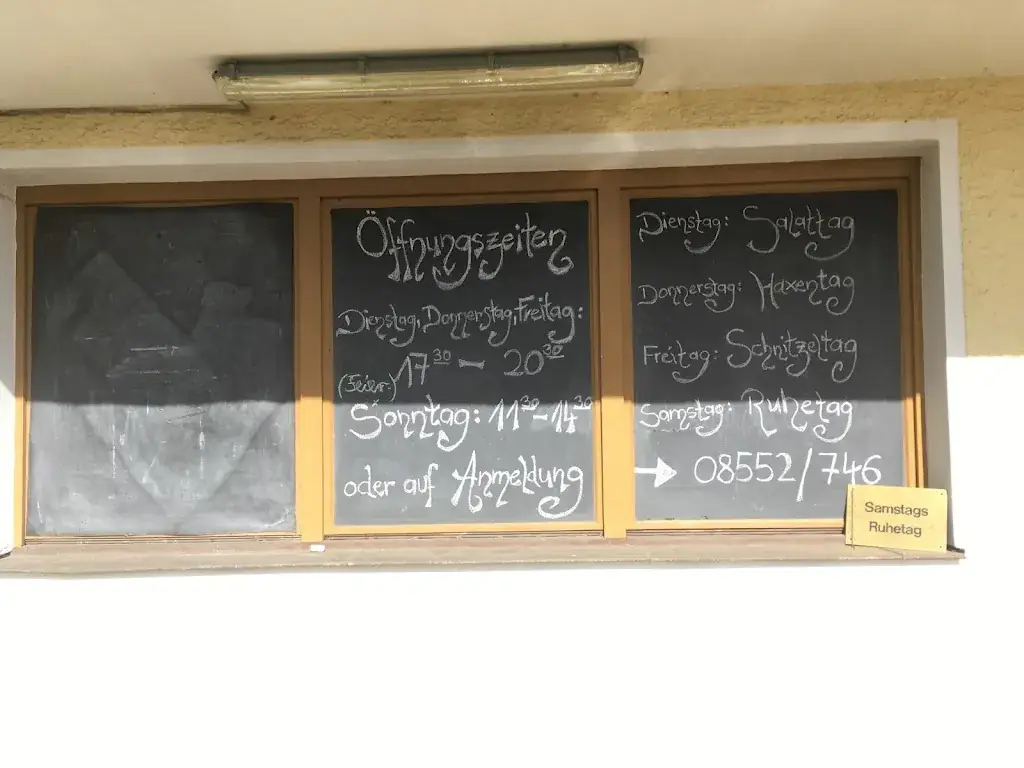 Öffnungszeiten
Dienstag, Donnerstag, Freitag:
17³⁰ – 20³⁰
(Feier.)
Sonntag: 11³⁰-14³⁰
oder auf Anmeldung
Dienstag: Salattag
Donnerstag: Haxentag
Freitag: Schnitzeltag
Samstag: Ruhetag
→ 08552/746
Samstags
Ruhetag